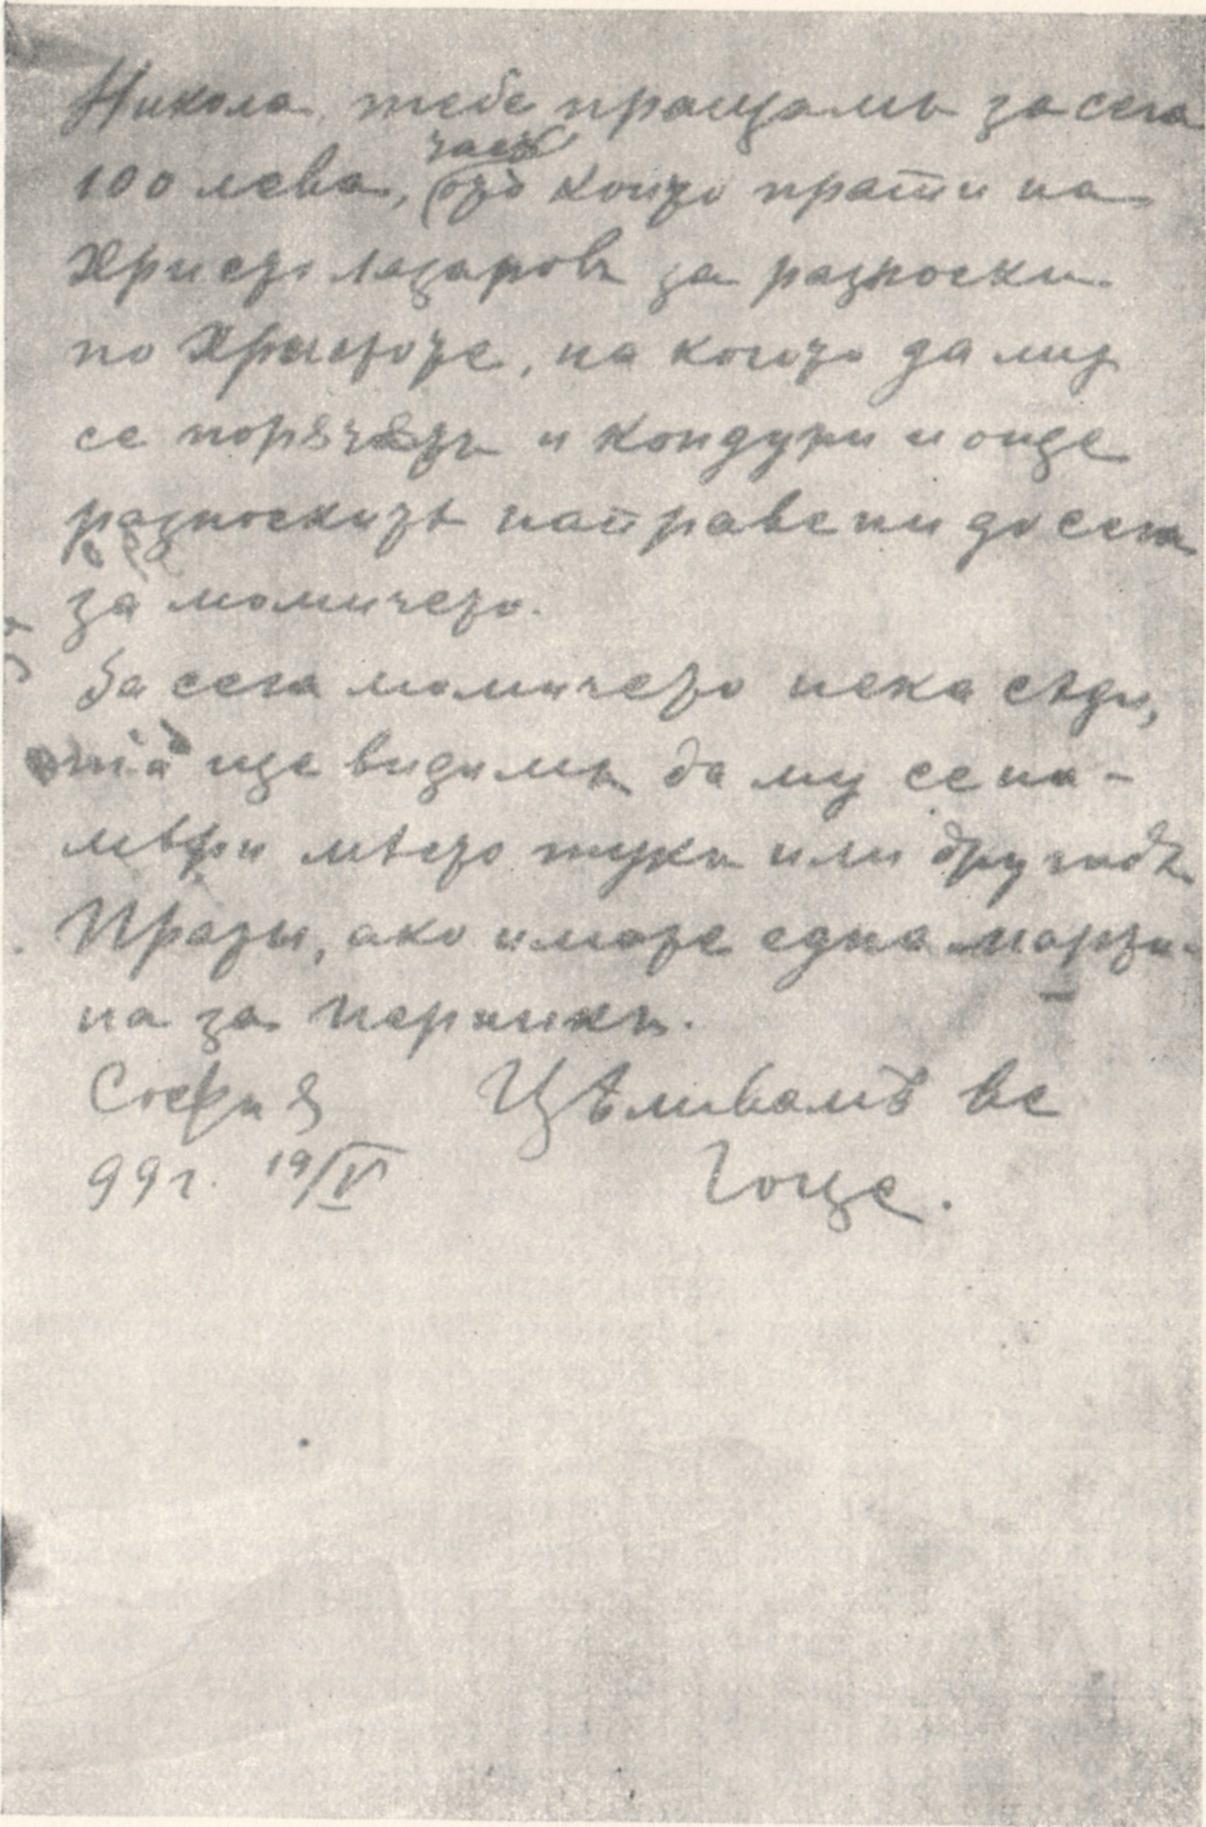 Никола, тебе пращамъ за сега
часть
100 лева, отъ които прати на
Христо Лазаровъ за разноски
по Христоте, на когото да му
се порѫчатъ и кондури и още
разноскитѣ направени до сега
за момичето.
За сега момичето нека сѣди,
тіа ще видимъ да му се на-
мѣри мѣсто тука или другадѣ.
Прати, ако имате една марти-
на за Перникъ.
София Цѣливамъ ве
99 г. 19/V Гоце.